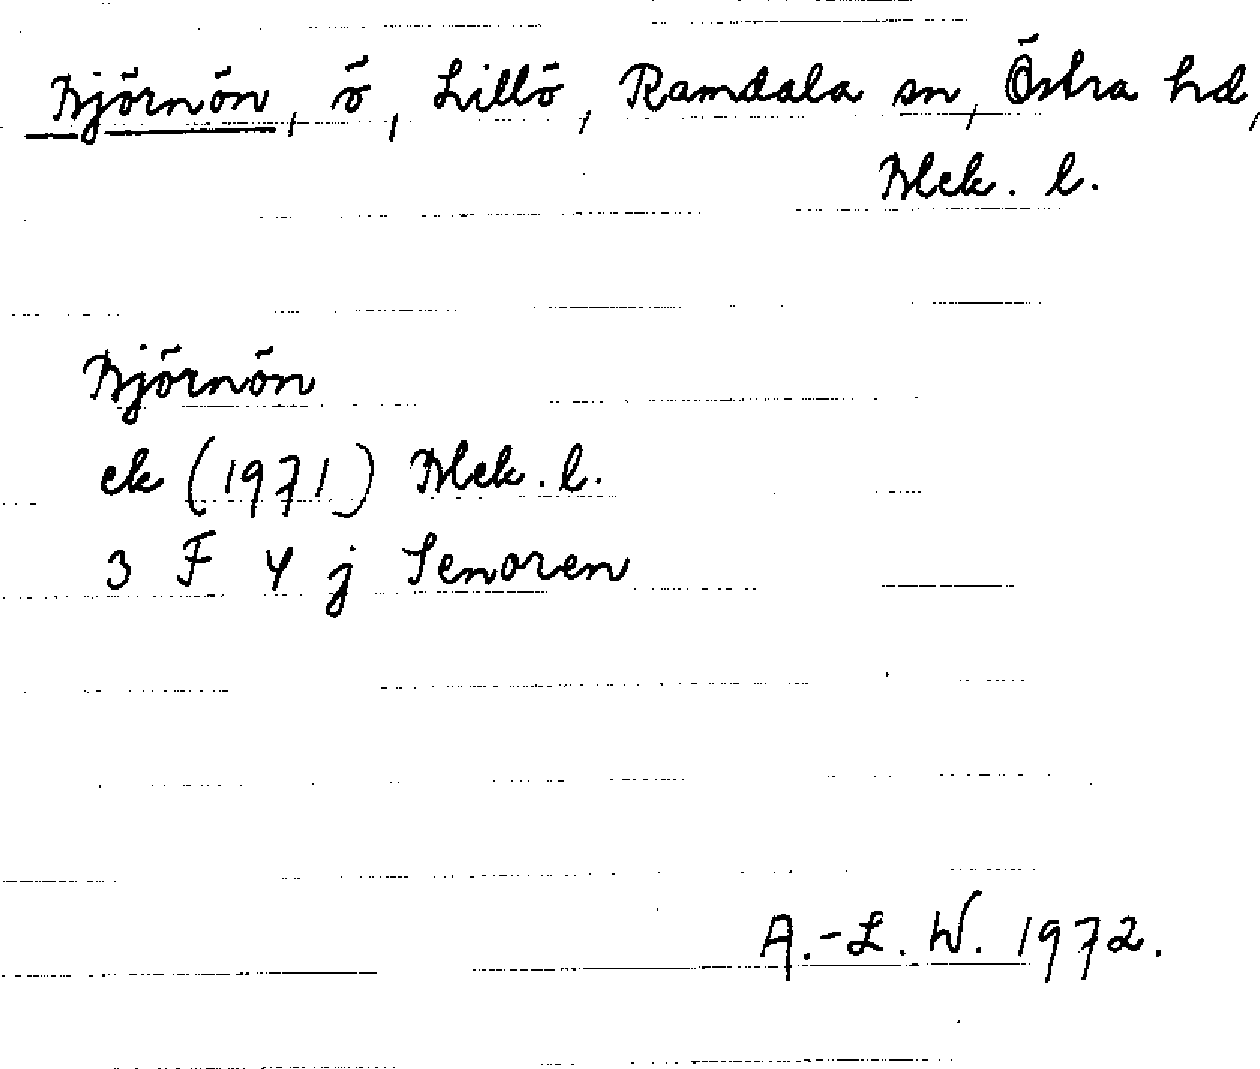 Björnön, ö, Lillö, Ramdala sn, Östra hd,
Blek. l.
Björnön
ek (1971) Blek. l.
3 F 4 j Senoren
A.-L. W. 1972.